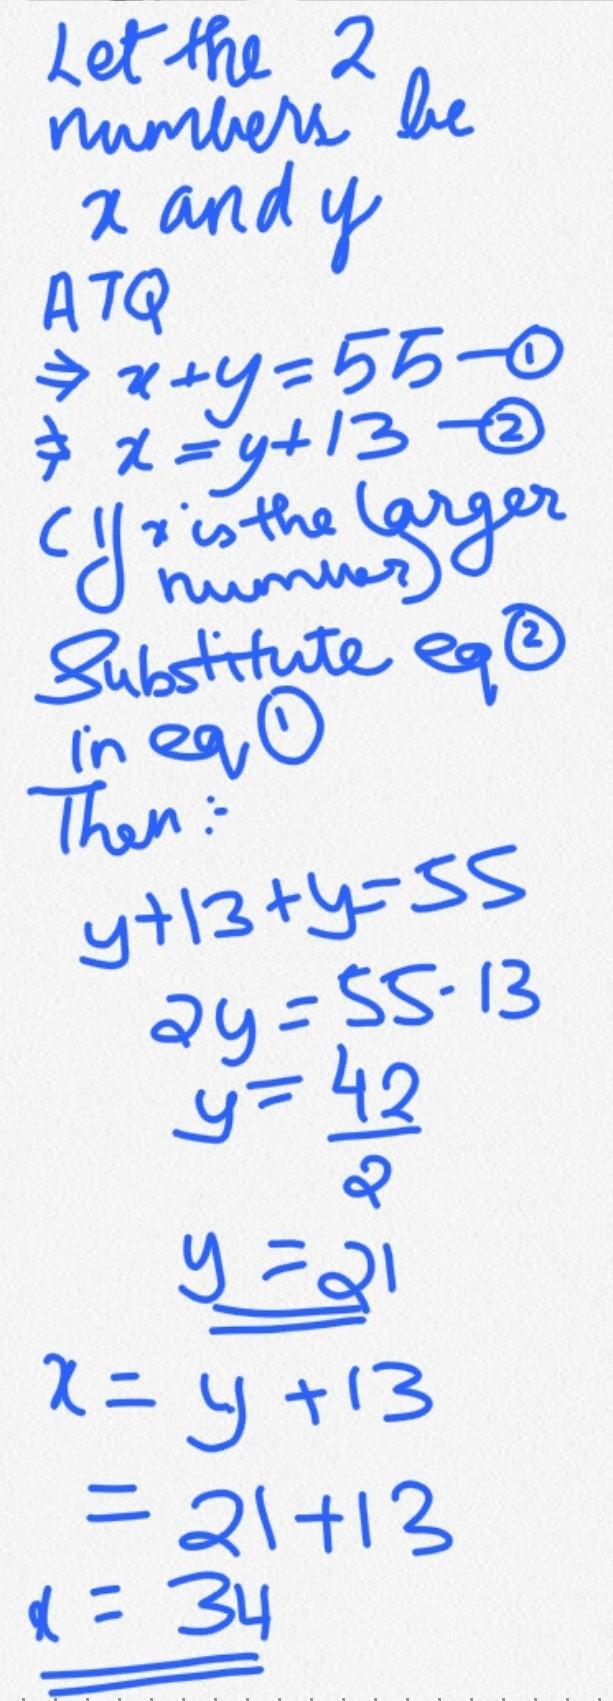 Let the 2
numbers be
x and y
ATQ
⇒ x+y=55-①
⇒ x=y+13 -②
(If x is the larger
number)
Substitute eq②
in eq①
Then:-
y+13+y=55
2y=55-13
y=42/2
y=21
x=y+13
=21+13
x=34